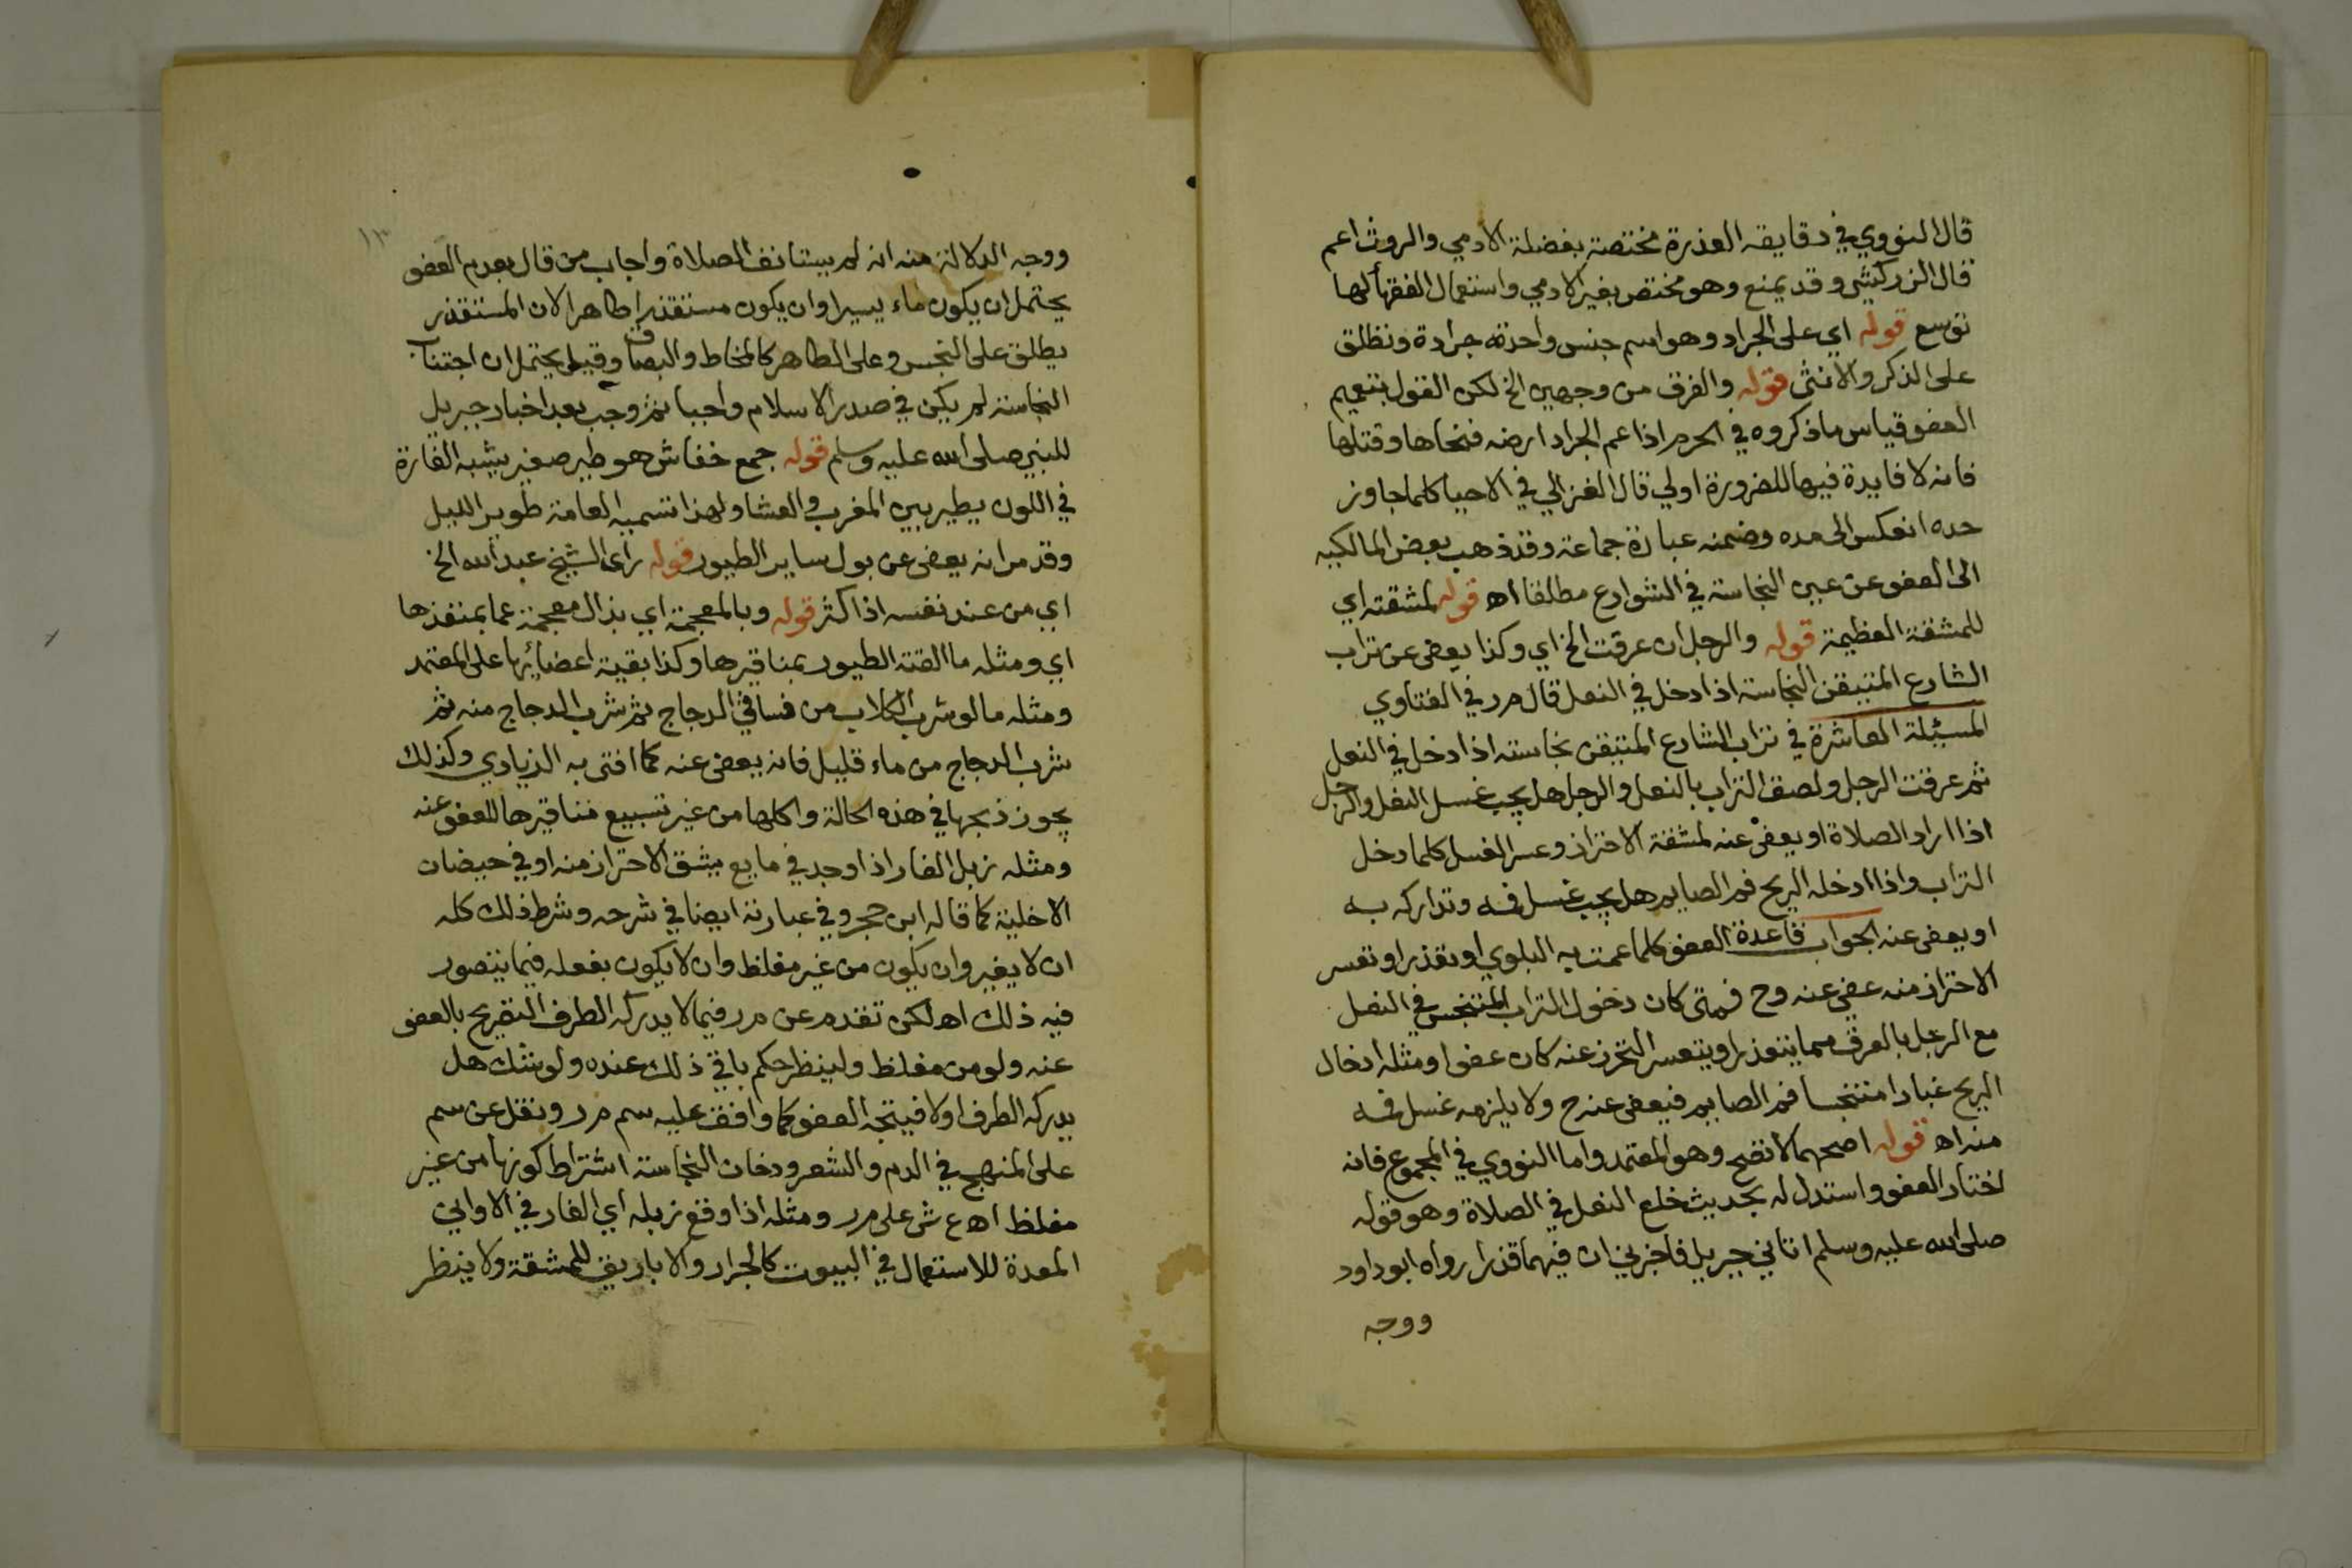 قال النووي في دقايقه العذرة مختصة بفضلة الادمي والروث اعم
قال الزركشي وقد يمنع وهو مختص بغير الادمي واستعمال الفقهأ لها
توسع قوله اي على الجراد وهو اسم جنس واحدته جرادة وتطلق
على الذكر والانثى قوله والفرق من وجهين الخ لكن القول بتعميم
العفو قياس ما ذكروه في الحرم اذا عم الجراد ارضه فتخاها وقتلها
فانه لا فايدة فيها للضرورة اولي قال الغزالي في الاحيا كلما جاوز
حده انعكس الى ضده وضمنه عبارة جماعة وقد ذهب بعض المالكيه
الى العفو عن عين النجاسة في الشوارع مطلقا اه قوله لمشقته اي
للمشقة العظيمة قوله والرجل ان عرقت الخ اي وكذا يعفى عن تراب
الشارع المتيقن النجاسة اذا دخل في النعل قال م ر في الفتاوي
المسيئلة العاشرة في تراب الشارع المتيقن نجاسته اذا دخل في النعل
ثم عرقت الرجل ولصق التراب بالنعل والرجل هل يجب غسل النعل والرجل
اذا اراد الصلاة او يعفى عنه لمشقة الاحتراز وعسر الغسل كلما دخل
التراب واذا ادخله الريح فم الصايم هل يجب غسل فمه وتداركه به
او يعفى عنه الجواب قاعدة العفو كلما عمت به البلوي او تعذر او تعسر
الاحتراز منه عفي عنه وح فمتى كان دخول التراب المتنجس في النعل
مع الرجل بالعرق مما يتعذر او يتعسر التحرز عنه كان عفوا ومثله ادخال
الريح غبارا متنجسا فم الصايم فيعفى عنه ح ولا يلزمه غسل فمه
منه اه قوله اصحهما لا تصح وهو المعتمد واما النووي في المجموع فانه
اختار العفو واستدل له بحديث خلع النعل في الصلاة وهو قوله
صلى الله عليه وسلم اتاني جبريل فاخبرني ان فيهما قذرا رواه ابوداود
ووجه
١٣
ووجه الدلالة منه انه لم يستانف الصلاة واجاب من قال بعدم العفو
يحتمل ان يكون ماء يسيرا وان يكون مستقذرا طاهرا لان المستقذر
يطلق على النجس وعلى الطاهر كالمخاط والبصاق وقيل يحتمل ان اجتناب
النجاسة لم يكن في صدر الاسلام واجبا ثم وجب بعد اخبار جبريل
للنبي صلى الله عليه وسلم قوله جمع خفاش هو طير صغير يشبه الفارة
في اللون يطير بين المغرب والعشا ولهذا تسميه العامة طوير الليل
وقد مر انه يعفى عن بول ساير الطيور قوله راى الشيخ عبد الله الخ
اي من عند نفسه اذا كثر قوله وبالمعجمة اي بذال معجمة عما بمنفذها
اي ومثله ما القته الطيور بمناقيرها وكذا بقية اعضائها على المعتمد
ومثله ما لو شرب الكلاب من فساقي الدجاج ثم شرب الدجاج منه ثم
شرب الدجاج من ماء قليل فانه يعفى عنه كما افتى به الزيادي وكذلك
يجوز ذبحها في هذه الحالة واكلها من غير تسبيع مناقيرها للعفو عنه
ومثله زبل الفار اذا وجد في مايع يشق الاحتراز منه او في حيضان
الاخلية كما قاله ابن حجر وفي عبارته ايضا في شرحه وشرط ذلك كله
ان لا يغير وان يكون من غير مغلظ وان لا يكون بفعله فيما يتصور
فيه ذلك اه لكن تقدم عن م ر فيما لا يدركه الطرف التصريح بالعفو
عنه ولو من مغلظ ولينظر حكم باقي ذلك عنده ولو شك هل
يدركه الطرف اولا فيتجه العفو كما وافق عليه سم م ر ونقل عن سم
على المنهج في الدم والشعر ودخان النجاسة اشتراط كونها من غير
مغلظ اه ع ش على م ر ومثله اذا وقع زبله اي الفار في الاواني
المعدة للاستعمال في البيوت كالجرار والاباريق للمشقة ولا ينظر